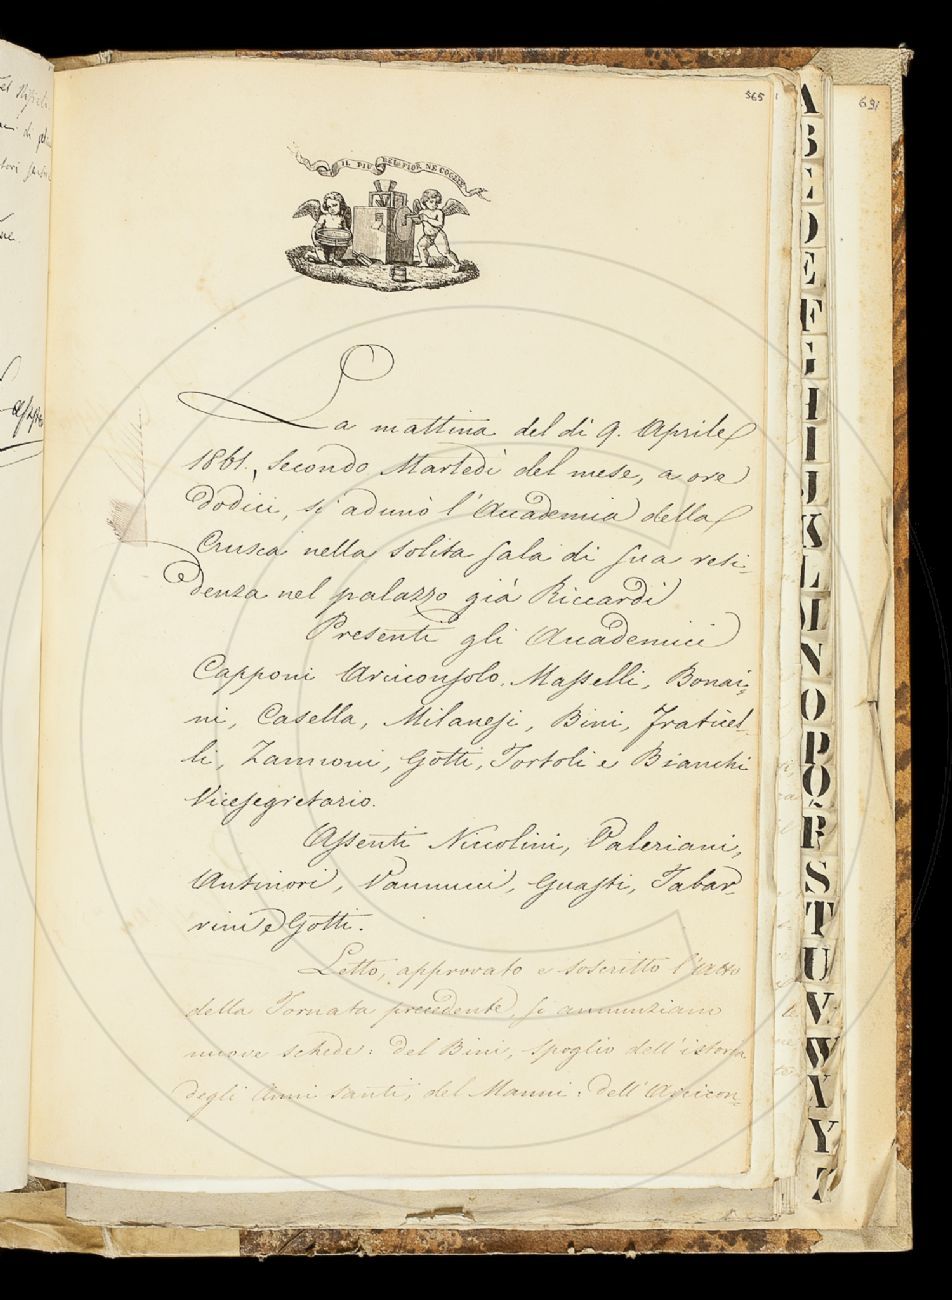 365
691
IL PIÙ BEL FIOR NE COGLIE
La mattina del dì 9. Aprile
1861., secondo Martedì del mese, a ore
dodici, si adunò l'Accademia della
Crusca nella solita sala di sua resi-
denza nel palazzo già Riccardi
Presenti gli Accademici
Capponi Arciconsolo. Masselli, Bonai-
ni, Casella, Milanesi, Bini, Fraticel-
li, Zannoni, Gotti, Tortoli e Bianchi
Vicesegretario.
Assenti Niccolini, Valeriani,
Antinori, Vannucci, Guasti, Tabar-
rini e Gotti.
Letto, approvato e soscritto l'Atto
della Tornata precedente, si annunziano
nuove schede: del Bini, spoglio dell'istoria
degli Anni santi, del Manni: dell'Arcicon-
A
B
C
D
E
F
G
H
I
J
K
L
M
N
O
P
Q
R
S
T
U
V
W
X
Y
Z